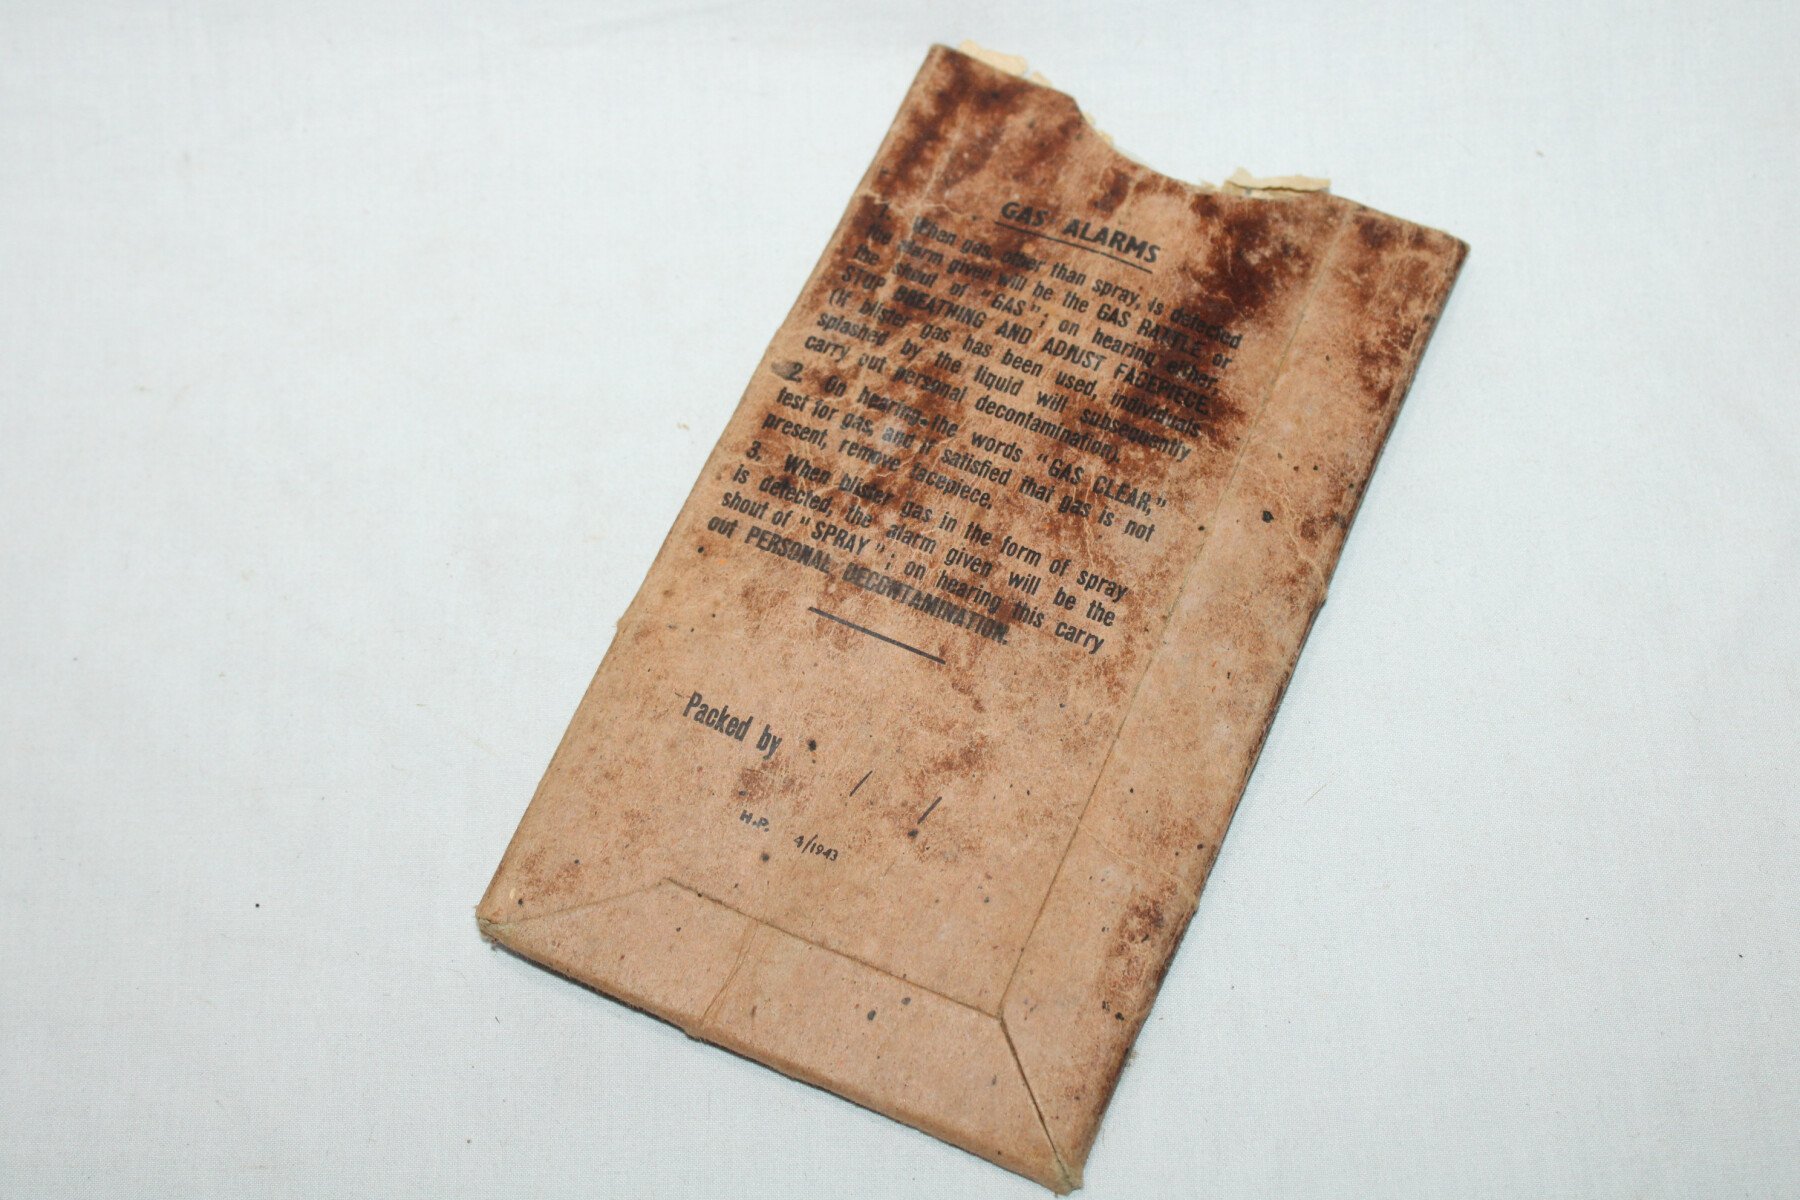 GAS ALARMS
1. When gas, other than spray, is detected
the alarm given will be the GAS RATTLE or
the shout of "GAS"; on hearing either,
STOP BREATHING AND ADJUST FACEPIECE
(If blister gas has been used, individuals
splashed by the liquid will subsequently
carry out personal decontamination).
2. On hearing the words "GAS CLEAR,"
test for gas, and if satisfied that gas is not
present, remove facepiece.
3. When blister gas in the form of spray
is detected, the alarm given will be the
shout of "SPRAY"; on hearing this carry
out PERSONAL DECONTAMINATION.
Packed by
/ /
H.P. 4/1943